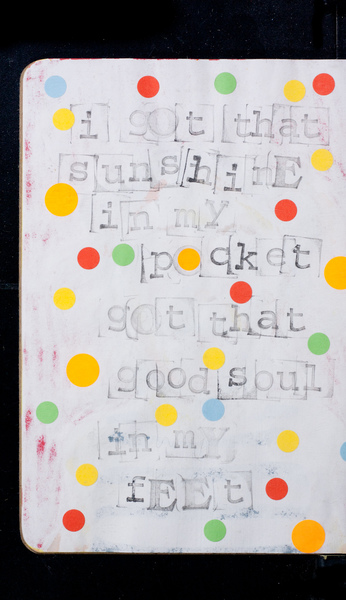 i got that
sunshinE
in my
pocket
got that
good soul
in my
fEEt